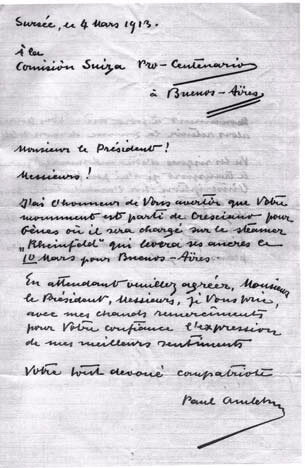 Sursée, le 4 Mars 1913.
à la
Comisión Suiza Pro-Centenario
à Buenos-Aÿres
Monsieur le Président!
Messieurs!
J'ai l'honneur de Vous avertir que Votre
monument est parti de Cresciano pour
Gènes où il sera chargé sur le steamer
„Rheinfeld" qui levera ses ancres le
10 Mars pour Buenos-Aÿres.
En attendant veuillez agréer, Monsieur
le Président, Messieurs, je Vous prie,
avec mes chauds remercîments
pour Votre confiance l'expression
de mes meilleurs sentiments
Votre tout devoué compatriote
Paul